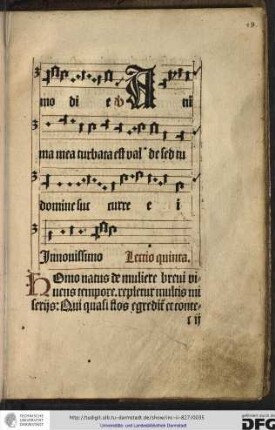 mo di e ℣ A ni
ma mea turbata est val' de sed tu
domine suc curre e i
In nouissimo Lectio quinta.
Homo natus de muliere breui vi
uens tempore. repletur multis mi
serijs: Qui quasi flos egredit̄ et conte-
t ij
http://tudigit.ulb.tu-darmstadt.de/show/inc-ii-827/0035
Universitäts- und Landesbibliothek Darmstadt
DFG